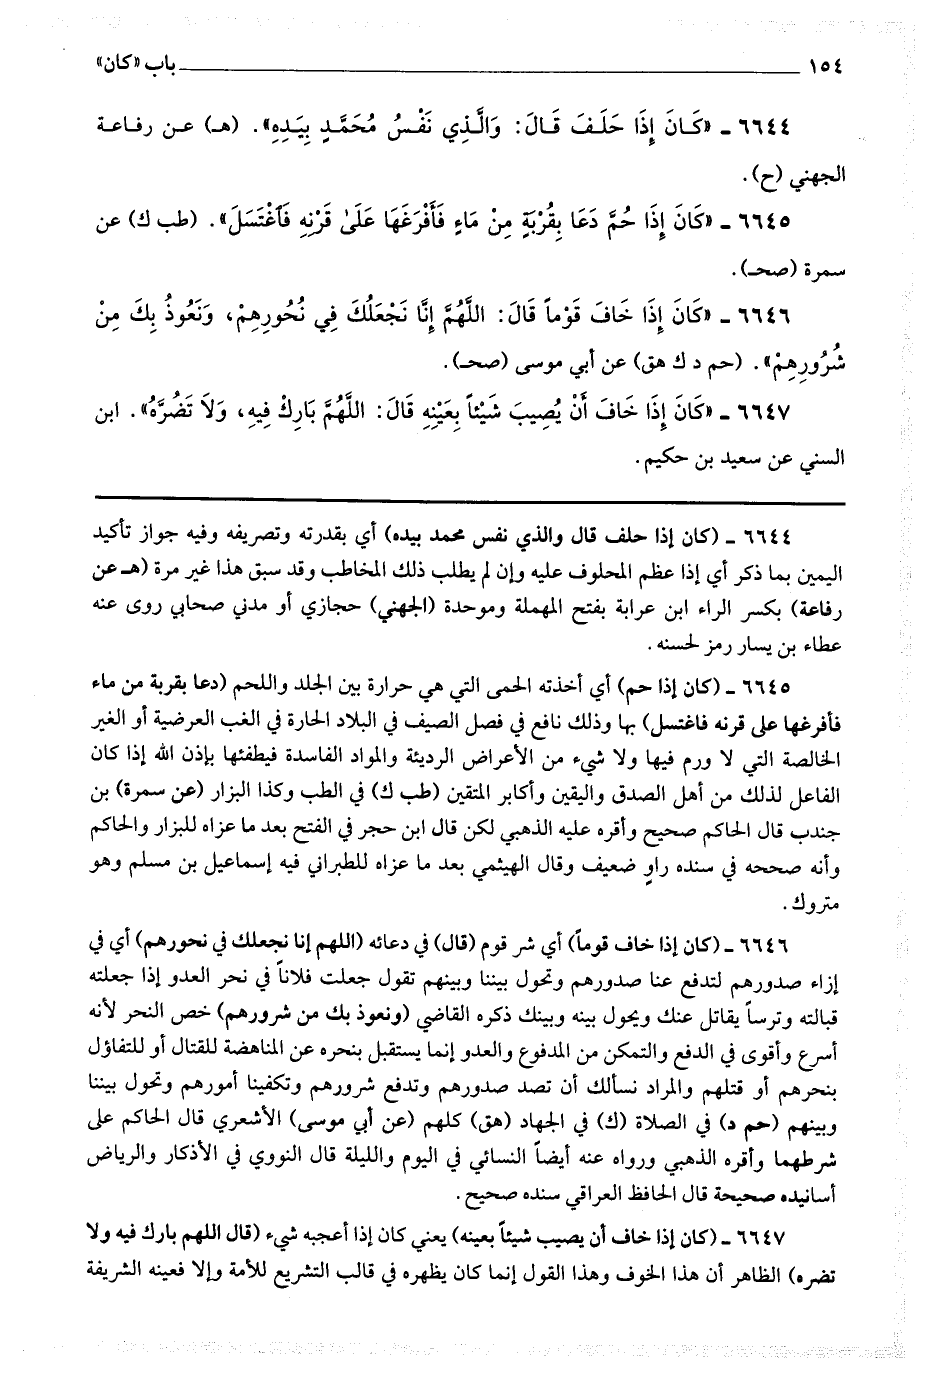 ١٥٤ باب «كان»
٦٦٤٤ ـ «كَانَ إِذَا حَلَفَ قَالَ: وَالَّذِي نَفْسُ مُحَمَّدٍ بِيَدِهِ». (هـ) عن رفاعة
الجهني (ح).
٦٦٤٥ ـ «كَانَ إِذَا حُمَّ دَعَا بِقُرْبَةٍ مِنْ مَاءٍ فَأَفْرَغَهَا عَلَىٰ قَرْنِهِ فَاغْتَسَلَ». (طب ك) عن
سمرة (صحـ).
٦٦٤٦ ـ «كَانَ إِذَا خَافَ قَوْماً قَالَ: اللَّهُمَّ إِنَّا نَجْعَلُكَ فِي نُحُورِهِمْ، وَنَعُوذُ بِكَ مِنْ
شُرُورِهِمْ». (حم د ك هق) عن أبي موسى (صحـ).
٦٦٤٧ ـ «كَانَ إِذَا خَافَ أَنْ يُصِيبَ شَيْئاً بِعَيْنِهِ قَالَ: اللَّهُمَّ بَارِكْ فِيهِ، وَلَا تَضُرَّهُ». ابن
السني عن سعيد بن حكيم.
٦٦٤٤ ـ (كان إذا حلف قال والذي نفس محمد بيده) أي بقدرته وتصريفه وفيه جواز تأكيد
اليمين بما ذكر أي إذا عظم المحلوف عليه وإن لم يطلب ذلك المخاطب وقد سبق هذا غير مرة (هـ عن
رفاعة) بكسر الراء ابن عرابة بفتح المهملة وموحدة (الجهني) حجازي أو مدني صحابي روى عنه
عطاء بن يسار رمز لحسنه.
٦٦٤٥ ـ (كان إذا حم) أي أخذته الحمى التي هي حرارة بين الجلد واللحم (دعا بقربة من ماء
فأفرغها على قرنه فاغتسل) بها وذلك نافع في فصل الصيف في البلاد الحارة في الغب العرضية أو الغير
الخالصة التي لا ورم فيها ولا شيء من الأعراض الرديئة والمواد الفاسدة فيطفئها بإذن الله إذا كان
الفاعل لذلك من أهل الصدق واليقين وأكابر المتقين (طب ك) في الطب وكذا البزار (عن سمرة) بن
جندب قال الحاكم صحيح وأقره عليه الذهبي لكن قال ابن حجر في الفتح بعد ما عزاه للبزار والحاكم
وأنه صححه في سنده راوٍ ضعيف وقال الهيثمي بعد ما عزاه للطبراني فيه إسماعيل بن مسلم وهو
متروك.
٦٦٤٦ ـ (كان إذا خاف قوماً) أي شر قوم (قال) في دعائه (اللهم إنا نجعلك في نحورهم) أي في
إزاء صدورهم لتدفع عنا صدورهم وتحول بيننا وبينهم تقول جعلت فلاناً في نحر العدو إذا جعلته
قبالته وترساً يقاتل عنك ويحول بينه وبينك ذكره القاضي (ونعوذ بك من شرورهم) خص النحر لأنه
أسرع وأقوى في الدفع والتمكن من المدفوع والعدو إنما يستقبل بنحره عن المناهضة للقتال أو للتفاؤل
بنحرهم أو قتلهم والمراد نسألك أن تصد صدورهم وتدفع شرورهم وتكفينا أمورهم وتحول بيننا
وبينهم (حم د) في الصلاة (ك) في الجهاد (هق) كلهم (عن أبي موسى) الأشعري قال الحاكم على
شرطهما وأقره الذهبي ورواه عنه أيضاً النسائي في اليوم والليلة قال النووي في الأذكار والرياض
أسانيده صحيحة قال الحافظ العراقي سنده صحيح.
٦٦٤٧ ـ (كان إذا خاف أن يصيب شيئاً بعينه) يعني كان إذا أعجبه شيء (قال اللهم بارك فيه ولا
تضره) الظاهر أن هذا الخوف وهذا القول إنما كان يظهره في قالب التشريع للأمة وإلا فعينه الشريفة